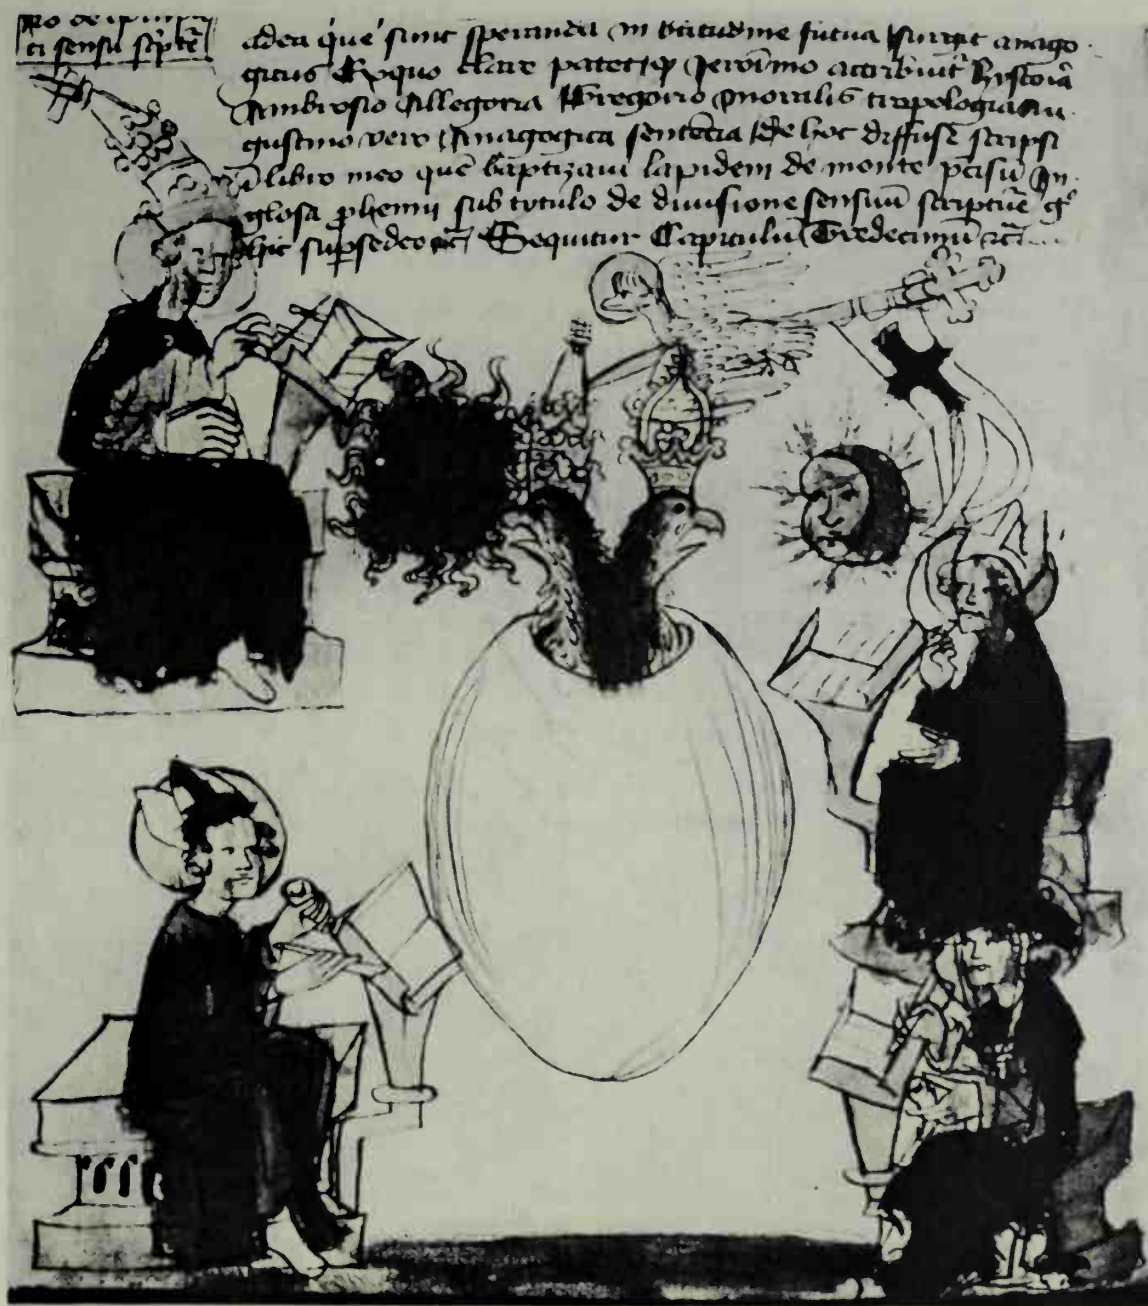 ti sensu scptē
adea que sunt speranda in btitudine futura surgit anago
gicus Ex quo clare patet q Jeronimo attribuit hystoria
Ambrosio Allegoria Gregorio moralis tropologia Au
gustino vero Anagogica sententia De hoc diffuse scripsi
i libro meo quē baptizaui lapidem de monte pcisū in
glosa phemii sub titulo de diuisione sensuū scripture g°
hic supsedeo Sequitur Capitulū Tredecimū